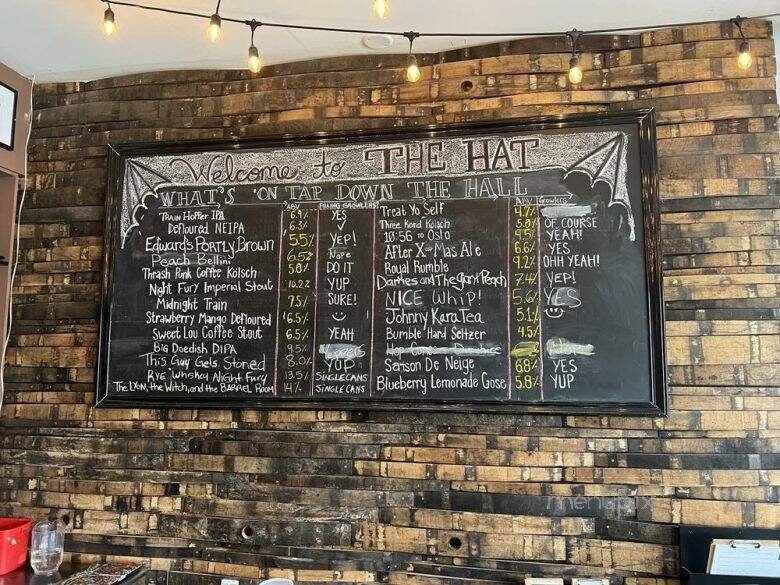 Welcome to THE HAT
WHAT'S ON TAP DOWN THE HALL
ABV
Train Hoffer IPA 6.9% YES
DeFloured NEIPA 6.3%
Edward's Portly Brown 5.5% YEP!
Peach Bellini 6.5% Nope
Thrash Pink Coffee Kölsch 5.8% DO IT
Night Fury Imperial Stout 10.2% YUP
Midnight Train 7.5% SURE!
Strawberry Mango DeFloured 6.5%
Sweet Lou Coffee Stout 6.5% YEAH
Big Doedish DIPA 9.5%
This Guy Gets Stoned 8.0% YUP
Rye Whiskey Night Fury 13.5% SINGLE CANS
The Lyon, the Witch, and the BARREL ROOM 14% SINGLE CANS
ABV Growlers
Treat Yo Self 4.7%
Three Kord Kölsch 5.0% OF COURSE
10:56 to Oslo 9.5% YEAH!
After X-Mas Ale 6.6% YES
Royal Rumble 9.2% OHH YEAH!
Darthes and The Giant Peach 7.4% YEP!
NICE Whip! 5.6% YES
Johnny KaraTea 5.1%
Bumble Hard Seltzer 4.5%
Saison De Neige 6.8% YES
Blueberry Lemonade Gose 5.8% YUP